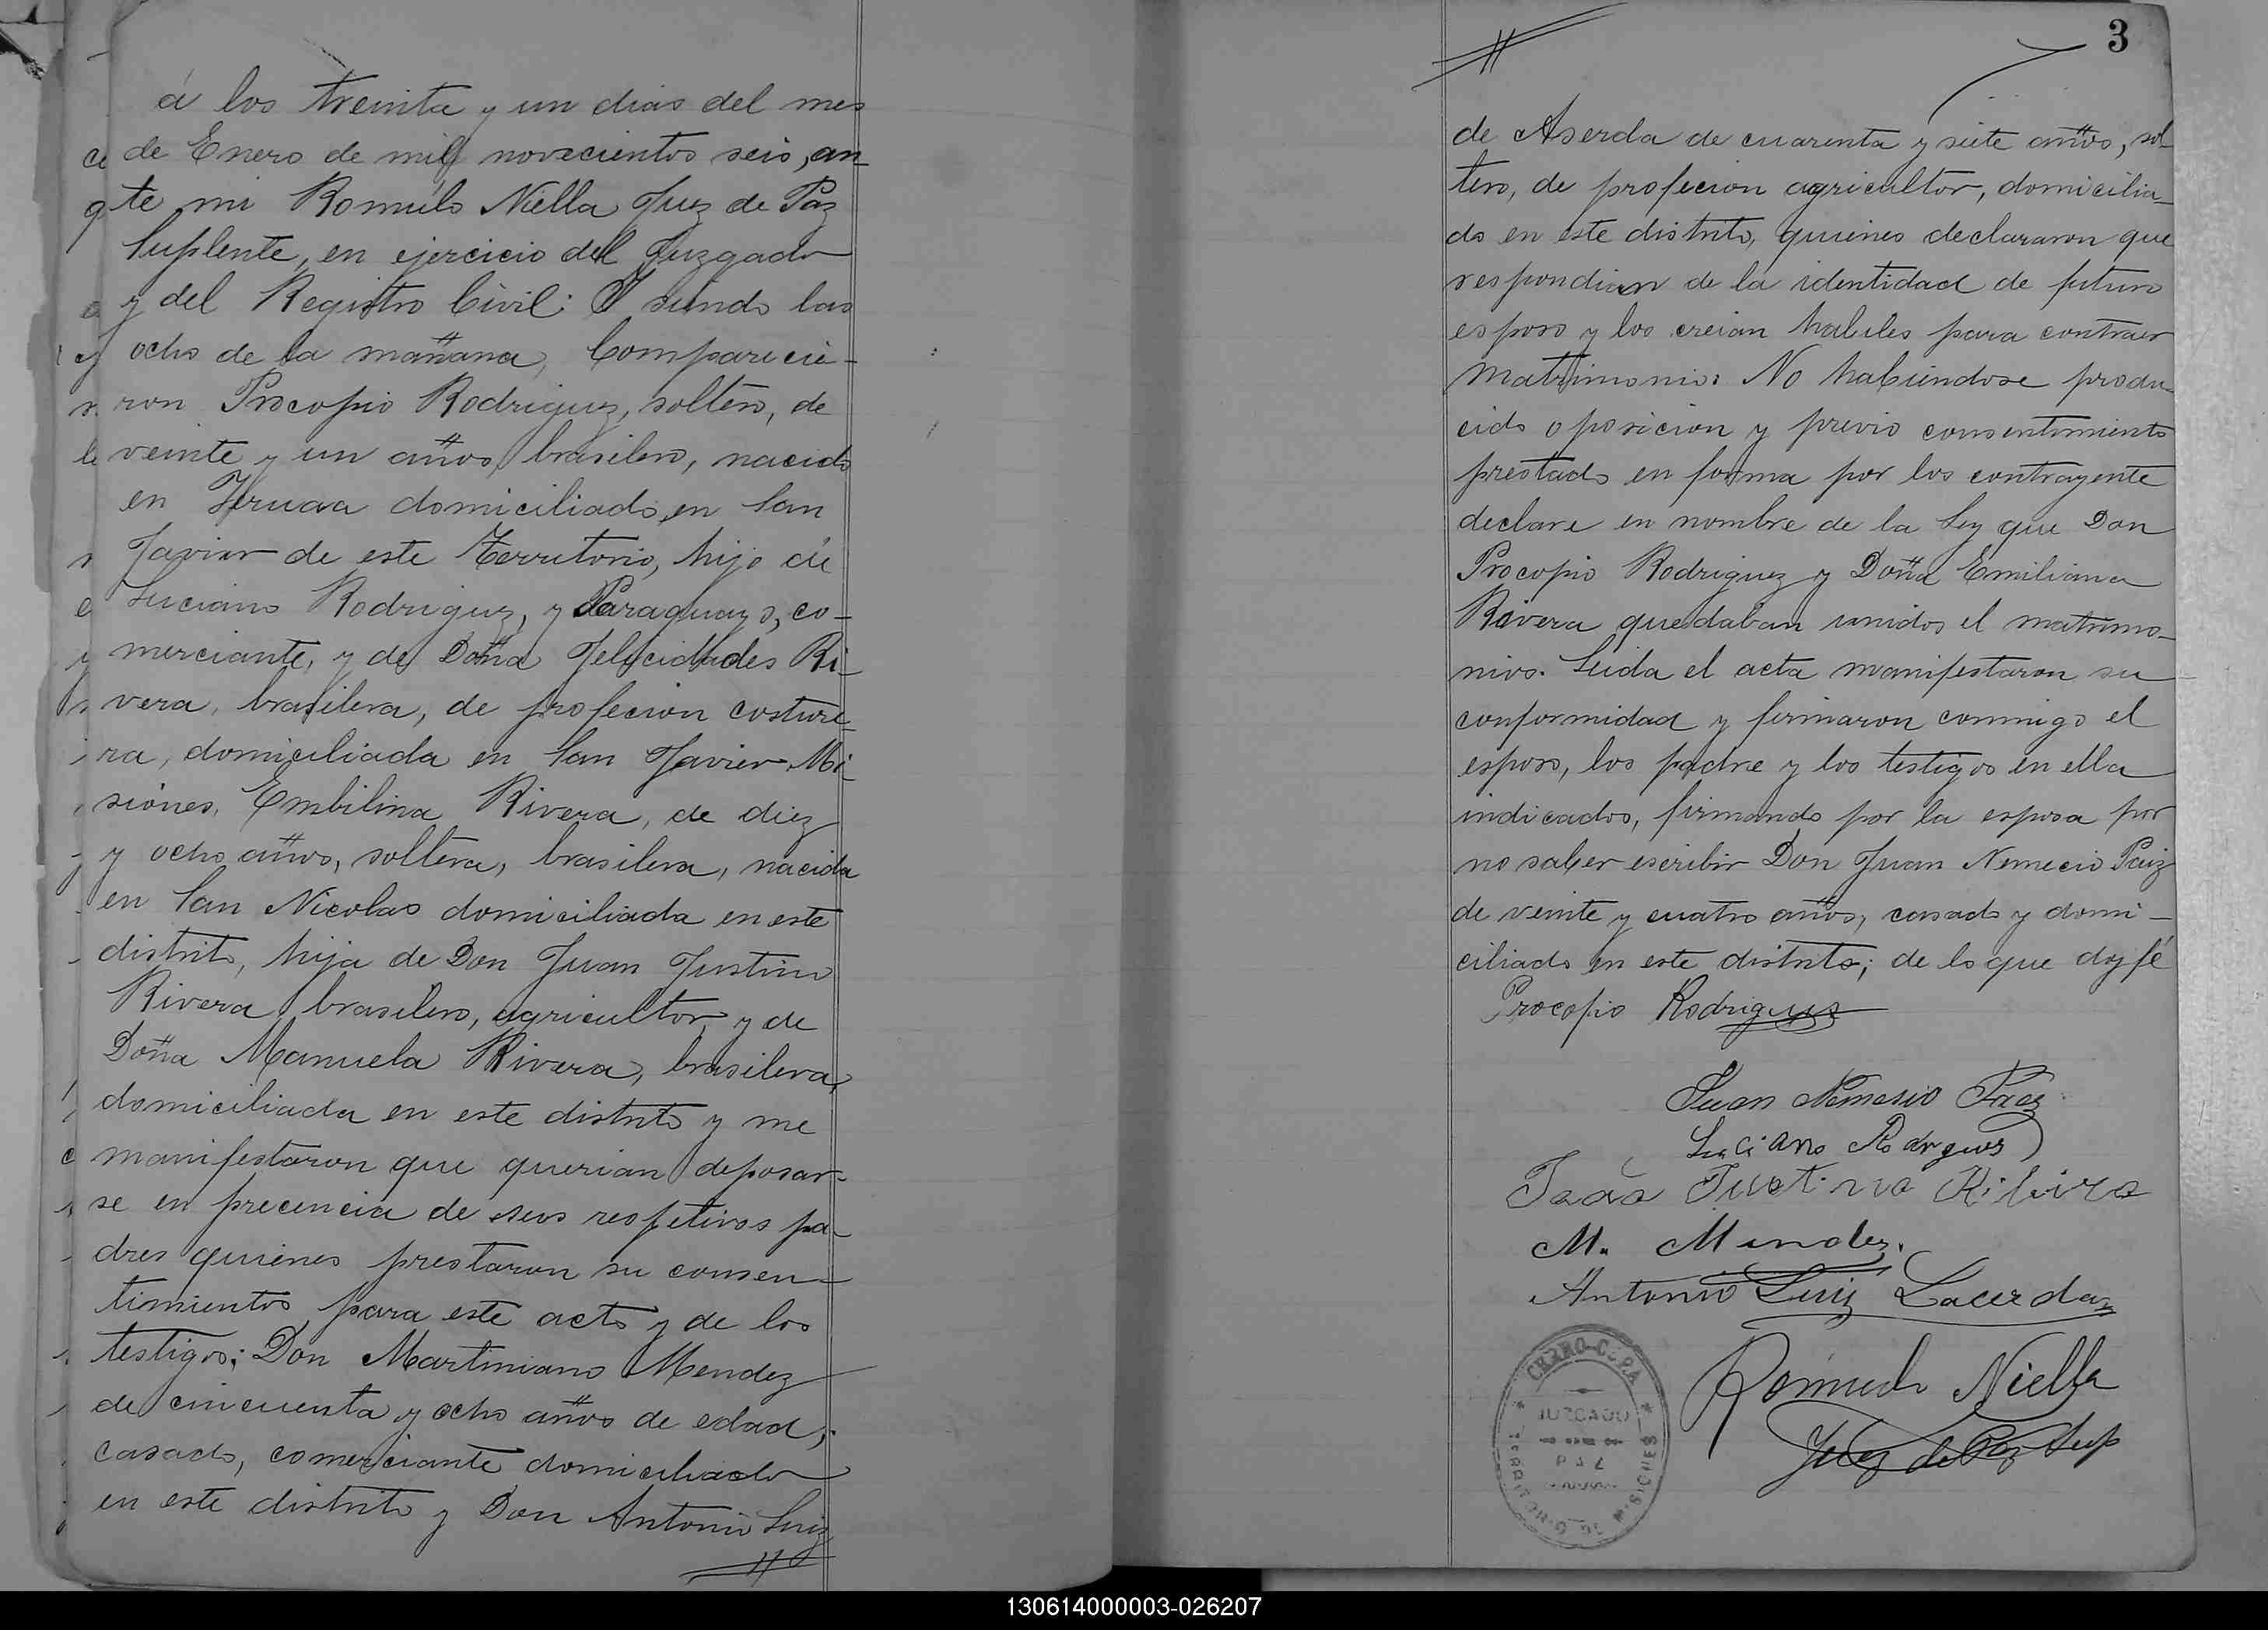 á los treinta y un dias del mes
de Enero de mil novecientos seis, an-
te mi Romúlo Niella Juez de Paz
Suplente, en ejercicio del Juzgado
y del Registro Civil: I siendo las
ocho de la mañana, Comparecie-
ron Procopio Rodriguez, soltero, de
veinte y un años, brasilero, nacido
en domiciliado en San
Javier de este Territorio, hijo de
Luciano Rodriguez, y Paraguayo, co-
merciante, y de Doña Felicidades Ri-
vera, brasilera, de profecion costure-
ra, domiciliada en San Javier, Mi-
siones, Embilina Rivera, de diez
y ocho años, soltera, brasilera, nacida
en San Nicolas domiciliada en este
distrito, hija de Don Juan Justino
Rivera brasilero, agricultor y de
Doña Manuela Rivera, brasilera,
domiciliada en este distrito y me
manifestaron que querian deposar-
se en precencia de seus respetivos pa-
dres quienes prestaron su consen-
timientos para este acto y de los
testigos: Don Martiniano Mendez
de cincuenta y ocho años de edad,
casado, comerciante domiciliado
en este distrito y Don Antonio Luiz
3
de Aserda de cuarenta y siete años, sol-
tero, de profecion agricultor, domicilia-
do en este distrito, quienes declararon que
respondian de la identidad de futuro
esposo y los creian habiles para contraer
matrimonio: No habiendose produ-
cido oposicion y previo consentimiento
prestado en forma por los contrayente
declare en nombre de la Ley que Don
Procopio Rodriguez y Doña Emiliana
Rivera quedaban unidos el matrimo-
nios. Leida el acta manifestaron su
conformidad y firmaron conmigo el
esposo, los padre y los testigos en ella
indicados, firmando por la esposa por
no saber escribir Don Juan Nemecio Paiz
de veinte y cuatro años, casado y domi-
ciliado en este distrito; de lo que doy fé
Procopio Rodrigues
Juan Nemesio Paez
Luciano Rodrgues
João Justino Ribeiro
M. Mendez.
Antonio Luiz Lacerda
Romulo Niella
Juez de Paz Sup
CERRO-CORA
JUZGADO
DE
PAZ
TERRITORIO MISIONES
130614000003-026207